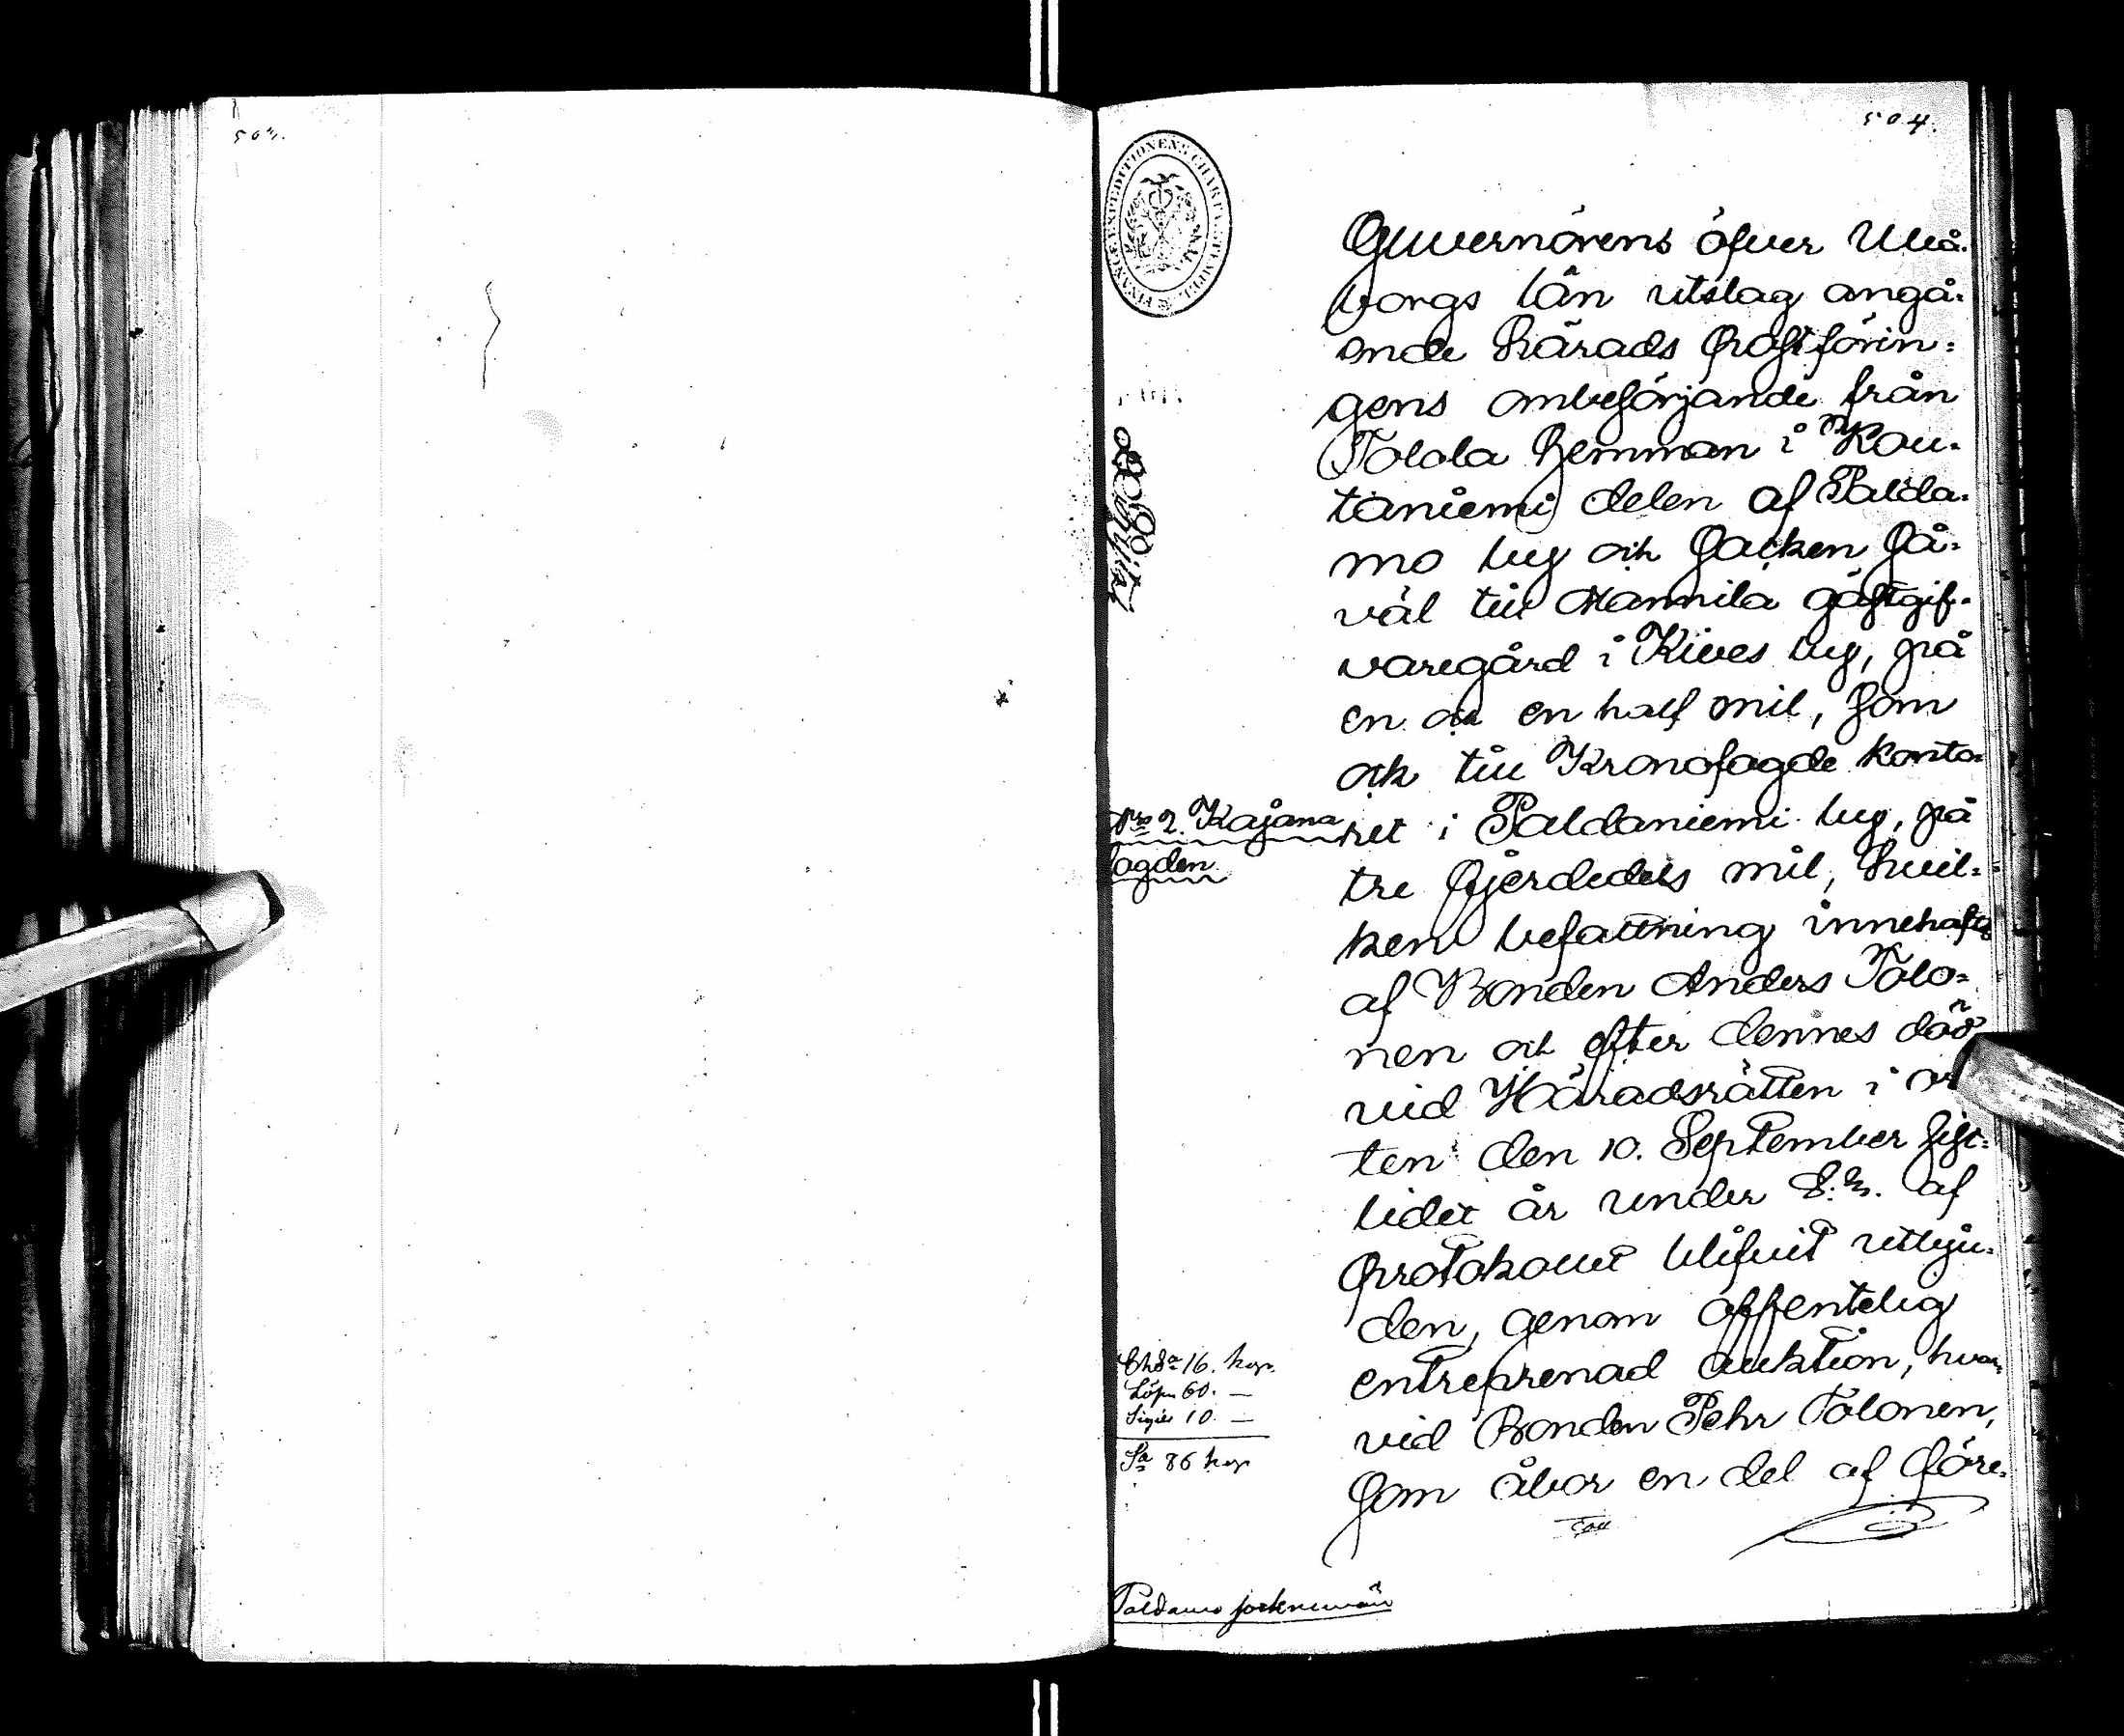 503.
504.
FINANCE EXPEDITIONENS CHARTÆ
Guvernörens öfver Uleå-
borgs län utslag angå-
ende härads postförin-
gens ombesörjande från
Tolola hemman i Kou-
taniemi delen af Palda-
mo by och socken så-
väl till Mannila gästgif-
varegård i Kives by, på
en och en half mil, som
och till Kronofogde konto-
N:o 2. Kajana
ret i Paldaniemi by, på
fogden
tre fjerdedels mil, hvil-
ken befattning innehafts
af Bonden Anders Tolo-
nen och efter dennes död
vid Häradsrätten i or-
ten den 10. September sist-
lidet år under §. af
protokollet blifvit utbju-
den, genom offentelig
entreprenad auktion, hvar-
vid Bonden Pehr Tolonen,
som åbor en del af före-
Chta 16. kop.
Lösn 60. —
Sigill 10. —
Sa 86 kop
Paldamo sockneman